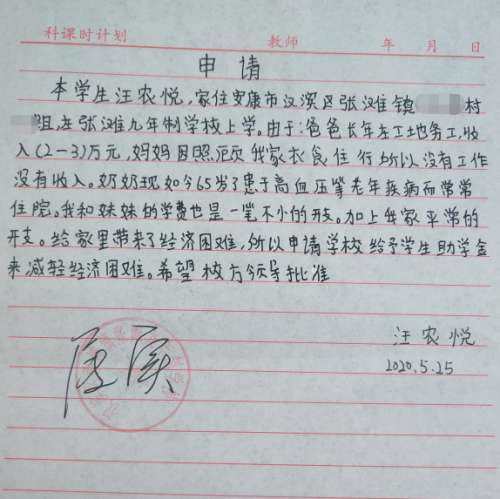 科课时计划 教师 年 月 日
申请
本学生汪农悦,家住安康市汉滨区张滩镇 村
组,在张滩九年制学校上学。由于:爸爸长年在工地务工,收
入(2-3)万元,妈妈因照顾我家衣食住行所以没有工作
没有收入。奶奶现如今65岁了患于高血压等老年疾病而常常
住院。我和妹妹的学费也是一笔不小的开支。加上我家平常的
开支。给家里带来了经济困难,所以申请学校给予学生助学金
来减轻经济困难。希望校方领导批准
汪农悦
2020.5.25